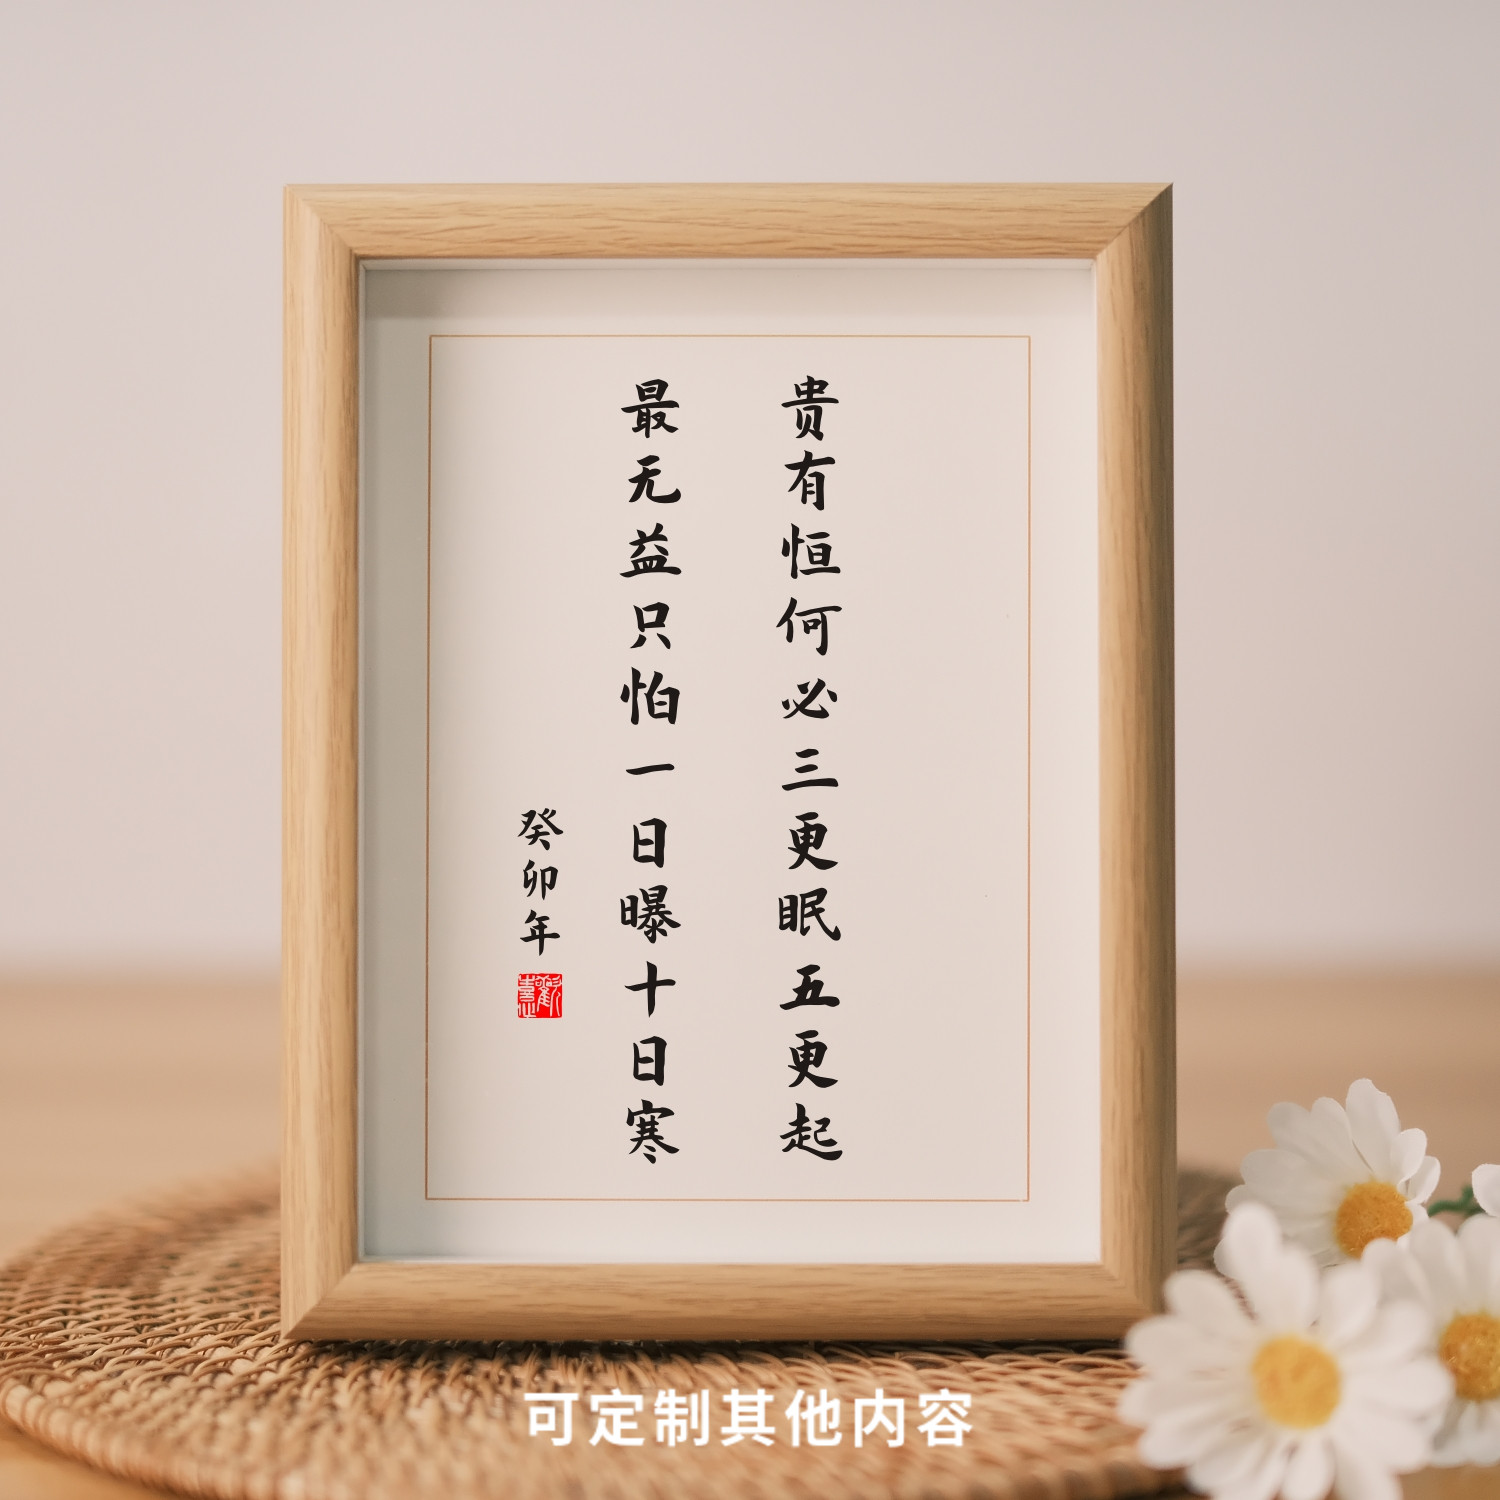 贵有恒何必三更眠五更起
最无益只怕一日曝十日寒
癸卯年
可定制其他内容